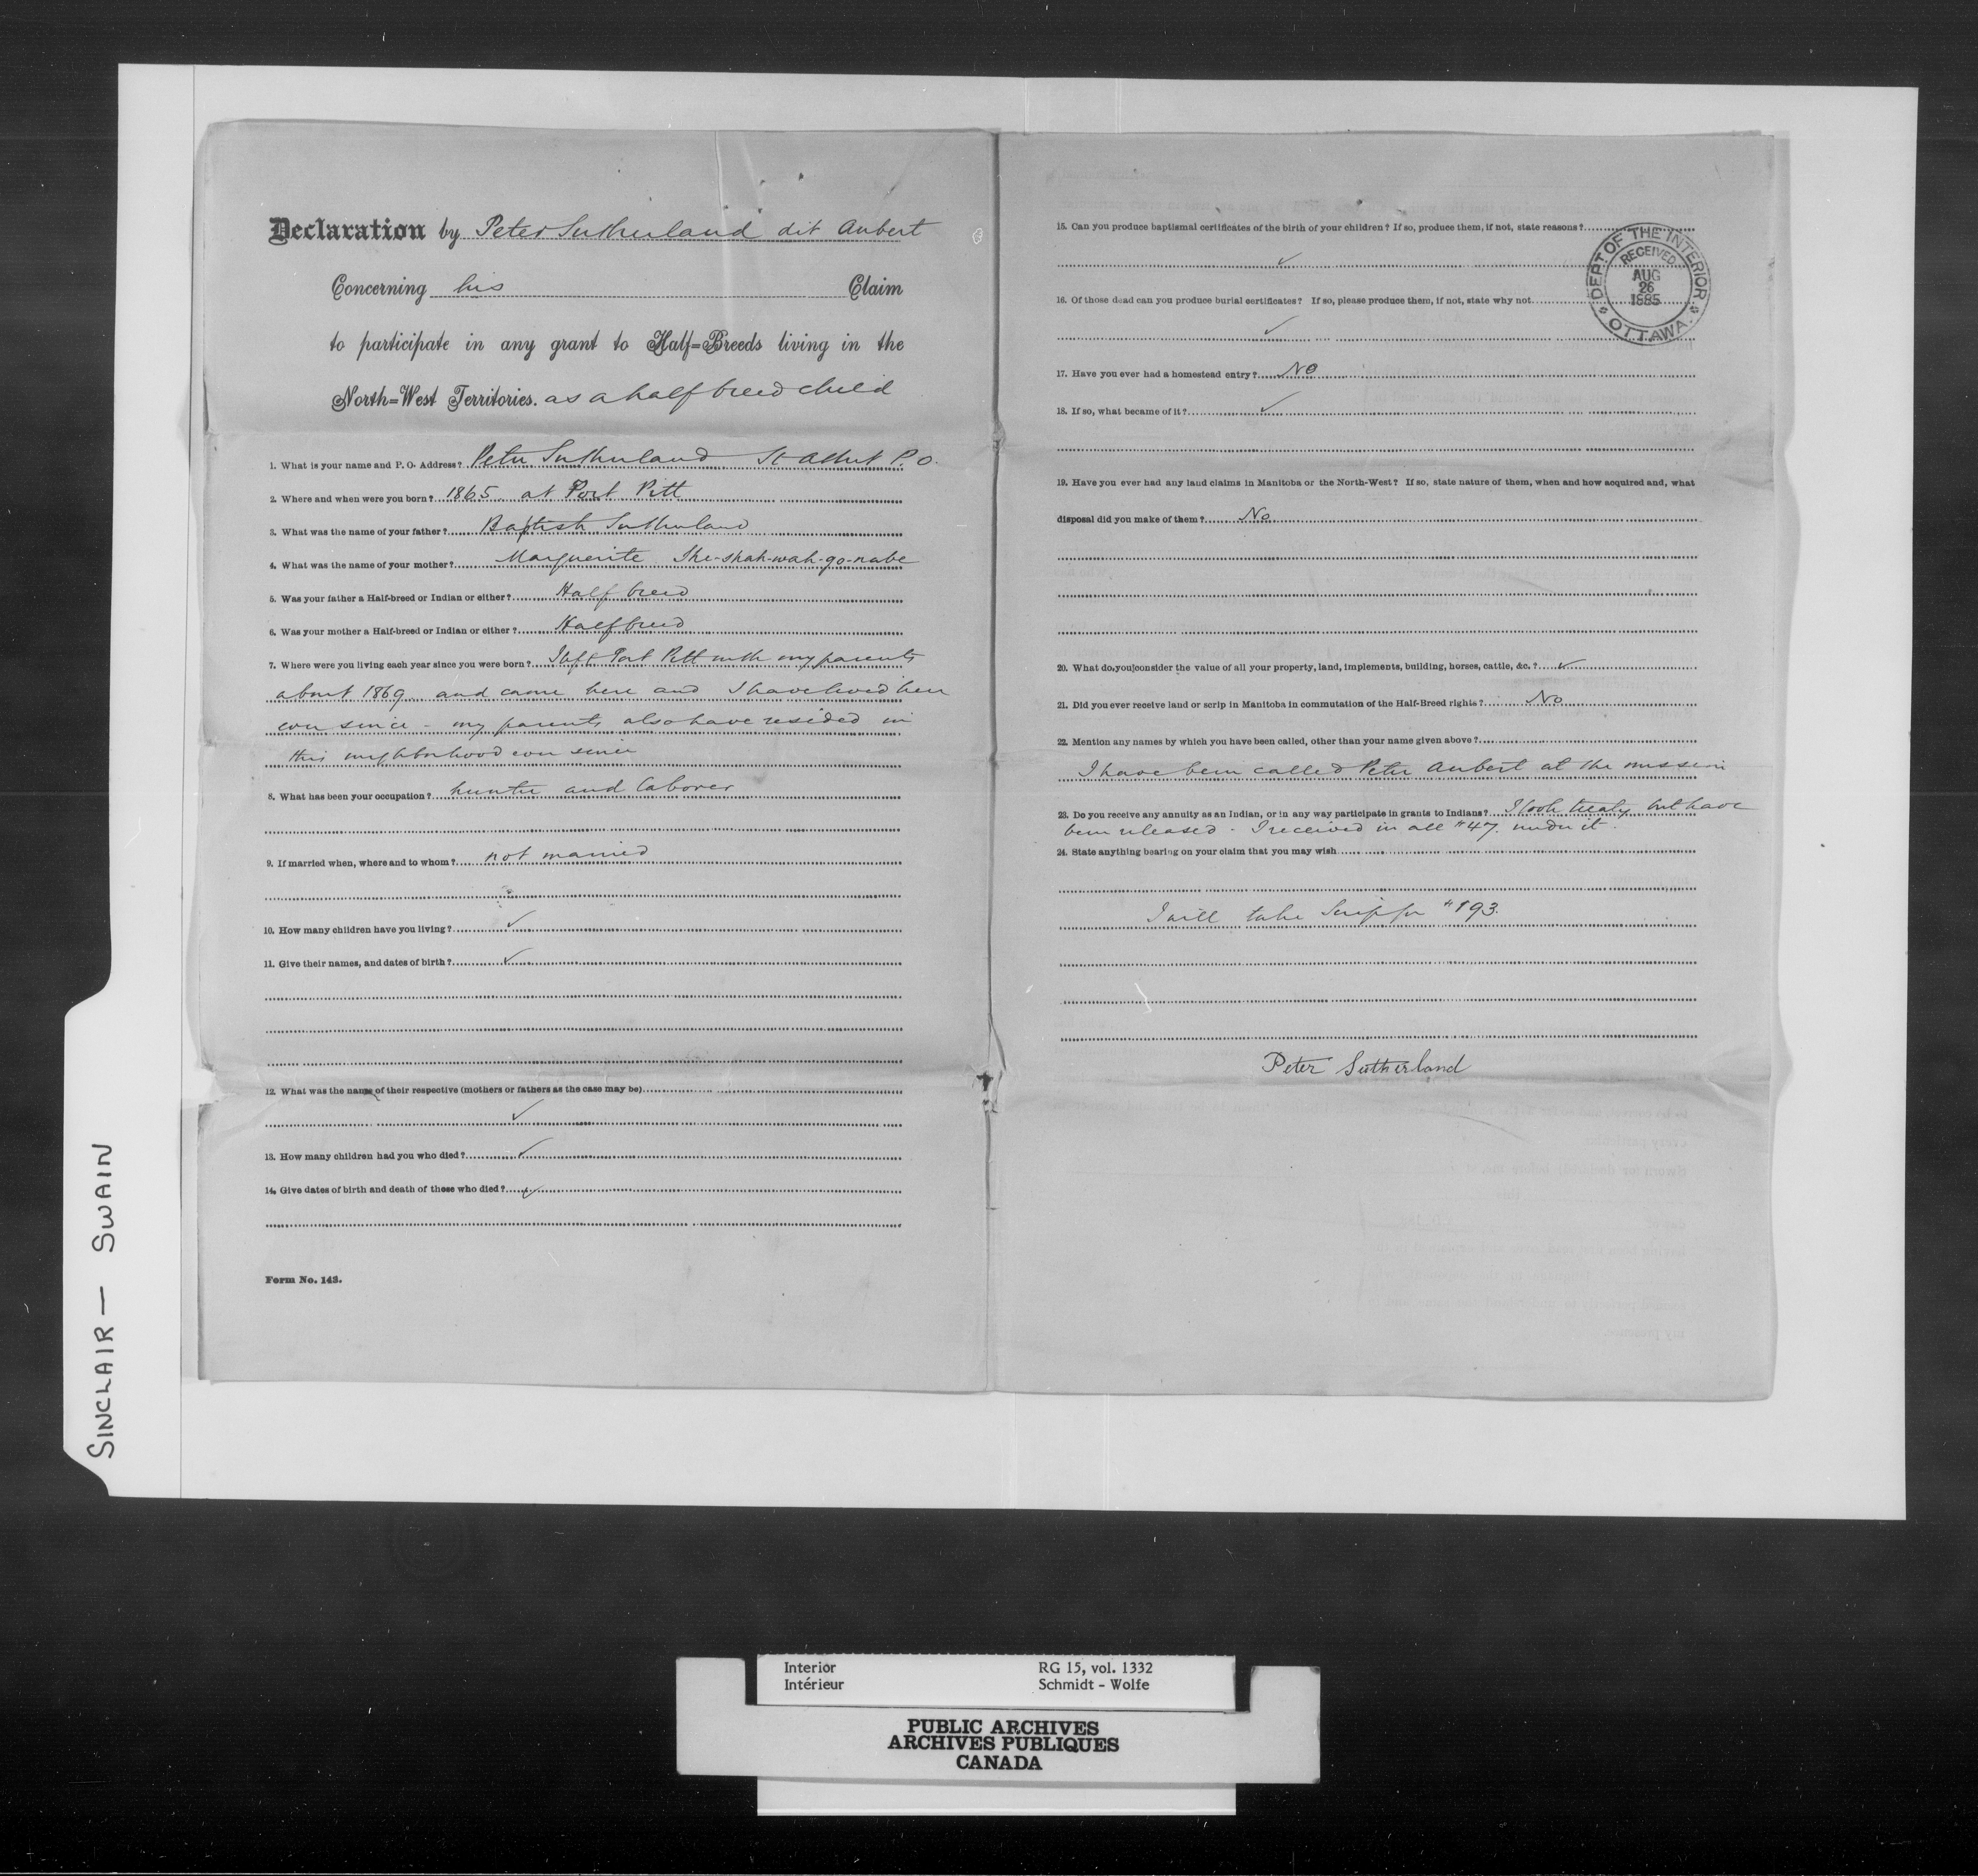 Declaration by Peter Sutherland dit Aubert
Concerning his Claim
to participate in any grant to Half=Breeds living in the
North=West Territories. as a half breed child
1. What is your name and P. O. Address? Peter Sutherland St Albert P.O.
2. Where and when were you born? 1865 at Fort Pitt
3. What was the name of your father? Baptish Sutherland
4. What was the name of your mother? Marguerite She-shah-wah-go-nabe
5. Was your father a Half-breed or Indian or either? Half breed
6. Was your mother a Half-breed or Indian or either? Half breed
7. Where were you living each year since you were born? I left Fort Pitt with my parents
about 1869 and came here and I have lived here
ever since - my parents also have resided in
this neighborhood ever since
8. What has been your occupation? hunter and laborer
9. If married when, where and to whom? not married
10. How many children have you living? ✓
11. Give their names, and dates of birth? ✓
12. What was the name of their respective (mothers or fathers as the case may be)
✓
13. How many children had you who died? ✓
14. Give dates of birth and death of these who died? ✓
Form No. 143.
15. Can you produce baptismal certificates of the birth of your children? If so, produce them, if not, state reasons?
✓
16. Of those dead can you produce burial certificates? If so, please produce them, if not, state why not
✓
17. Have you ever had a homestead entry? No
18. If so, what became of it? ✓
19. Have you ever had any land claims in Manitoba or the North-West? If so, state nature of them, when and how acquired and, what
disposal did you make of them? No
20. What do you consider the value of all your property, land, implements, building, horses, cattle, &c.? ✓
21. Did you ever receive land or scrip in Manitoba in commutation of the Half-Breed rights? No
22. Mention any names by which you have been called, other than your name given above?
I have been called Peter Aubert at the mission
23. Do you receive any annuity as an Indian, or in any way participate in grants to Indians? I took treaty but have
been released - I received in all $47. under it.
24. State anything bearing on your claim that you may wish
I will take Scrip for $193.
Peter Sutherland
DEPT. OF THE INTERIOR
RECEIVED
AUG
26
1885
OTTAWA
SINCLAIR — SWAIN
Interior RG 15, vol. 1332
Intérieur Schmidt - Wolfe
PUBLIC ARCHIVES
ARCHIVES PUBLIQUES
CANADA